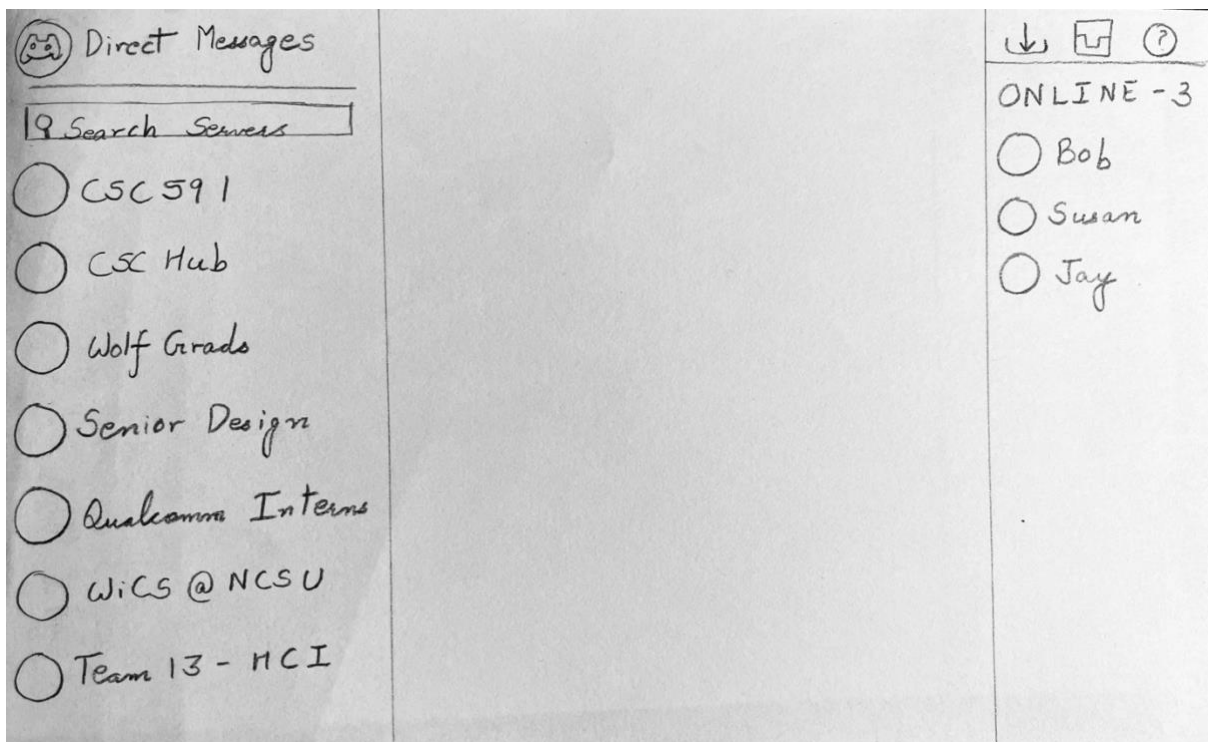 Direct Messages
Search Servers
CSC 591
CSC Hub
Wolf Grads
Senior Design
Qualcomm Interns
WiCS @ NCSU
Team 13 - HCI
?
ONLINE - 3
Bob
Susan
Jay